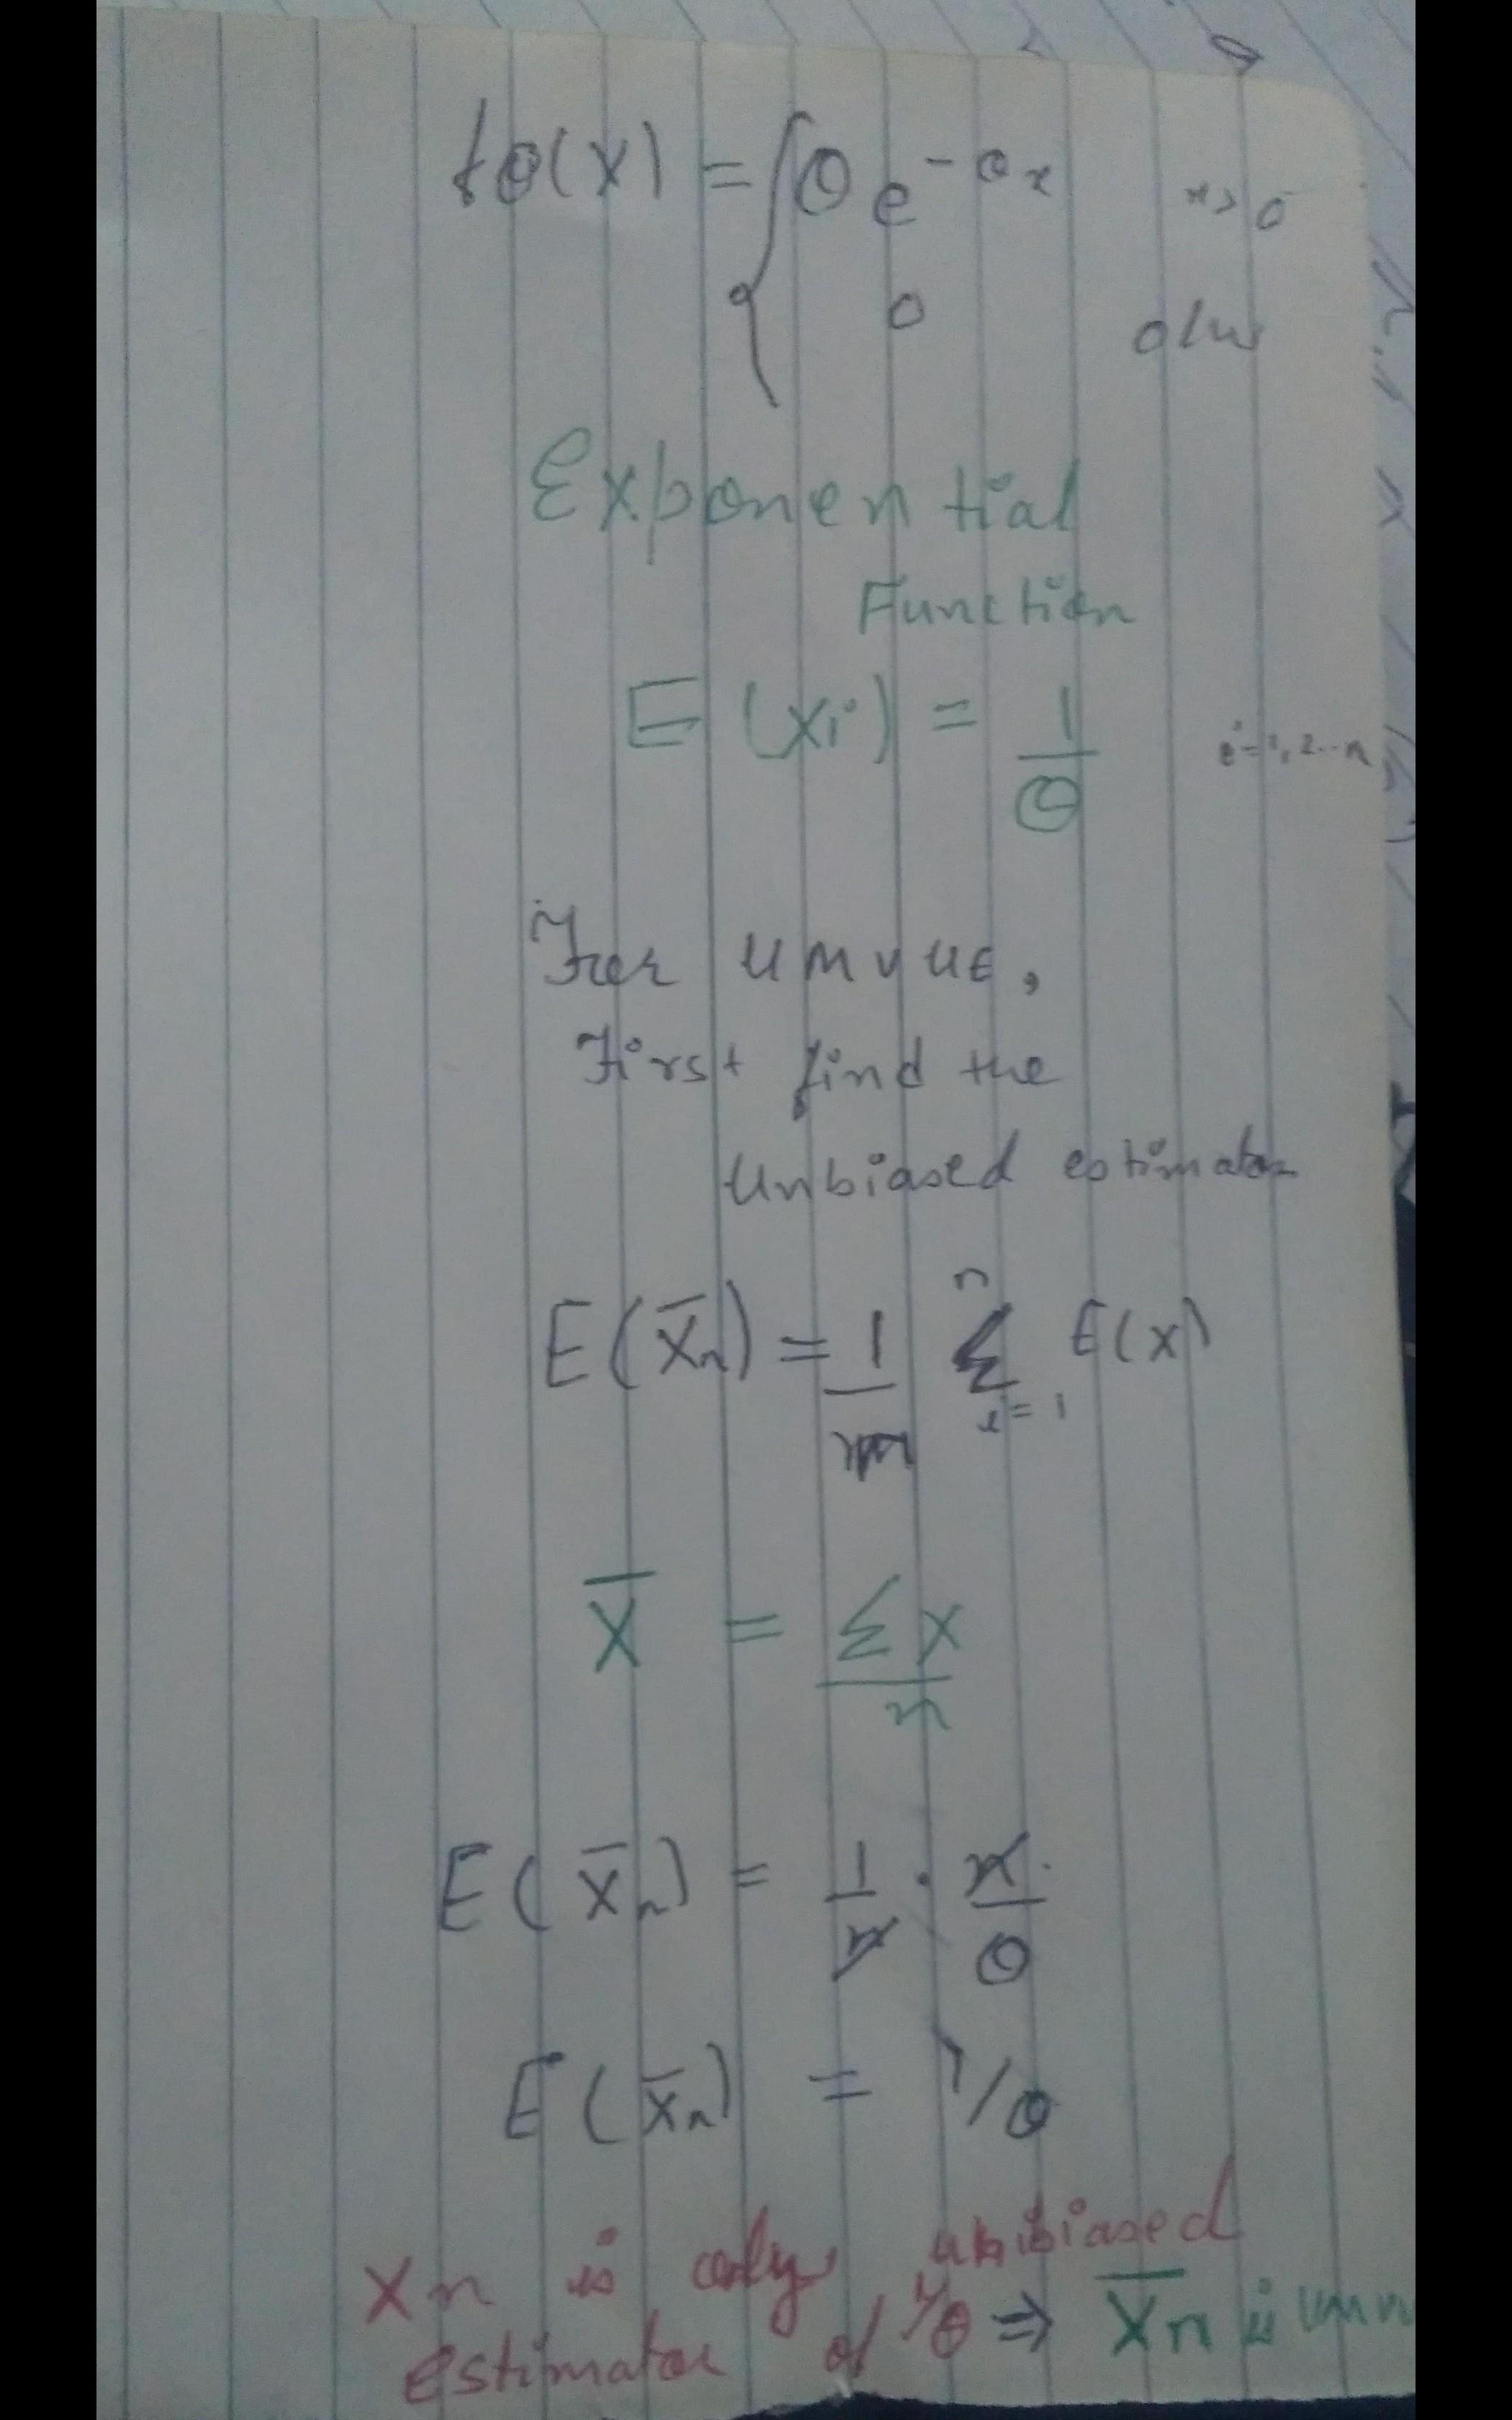 fθ(x) = { θ e^{-θx} x > 0
0 o/w
Exponential
Function
E (xi) = 1/θ i = 1, 2...n
For UMVUE,
First find the
unbiased estimator
E(X̄n) = 1/n Σ_{i=1}^{n} E(x)
X̄ = Σx/n
E(X̄n) = 1/n · n/θ
E(X̄n) = 1/θ
Xn is only unbiased
estimator of 1/θ ⇒ X̄n is